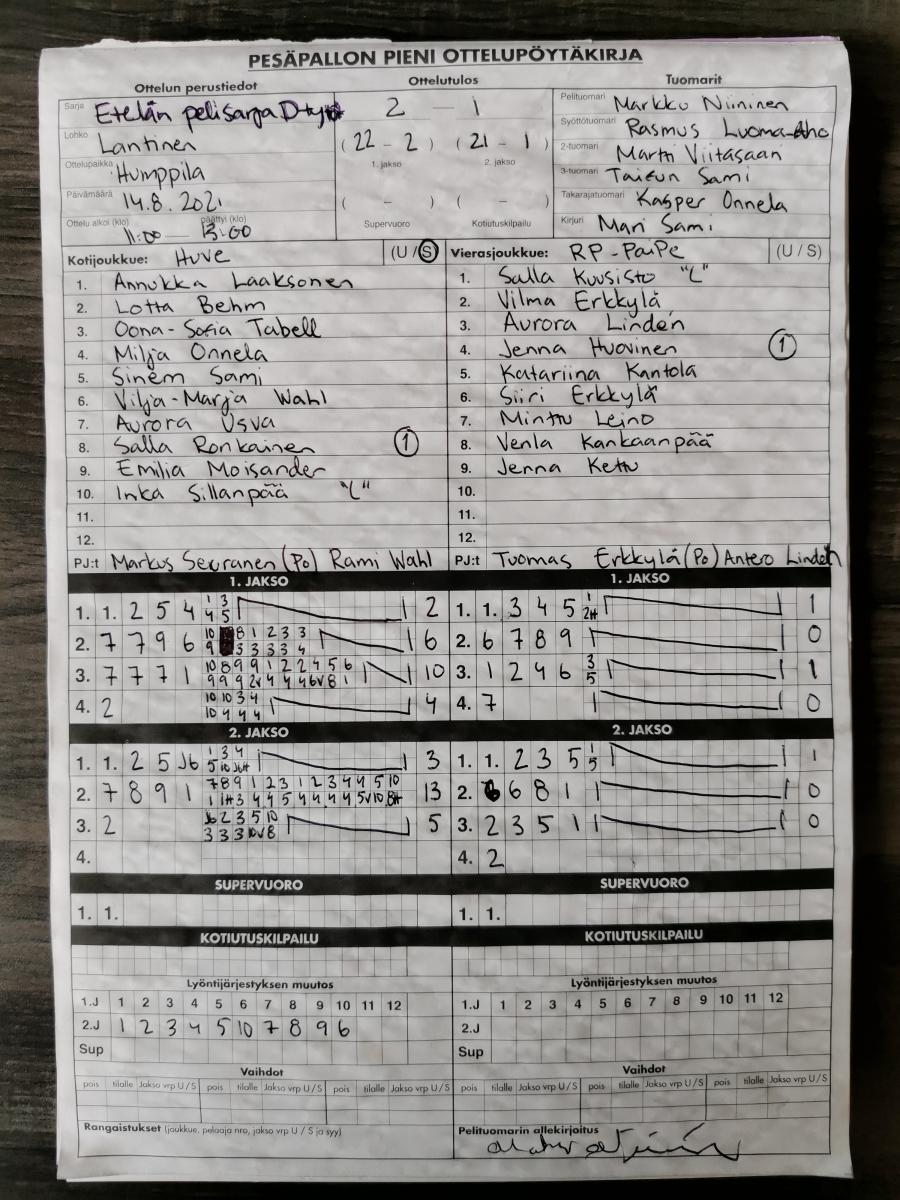 PESÄPALLON PIENI OTTELUPÖYTÄKIRJA
Ottelun perustiedot
Sarja Etelän pelisarja D-tytöt
Lohko Läntinen
Ottelupaikka Humppila
Päivämäärä 14.8.2021
Ottelu alkoi (klo) päättyi (klo)
11:00 — 13:00
Ottelutulos
2 — 1
(22 - 2) (21 - 1)
1. jakso 2. jakso
( - ) ( - )
Supervuoro Kotiutuskilpailu
Tuomarit
Pelituomari Markku Niininen
Syöttötuomari Rasmus Luoma-Aho
2-tuomari Martti Viitasaari
3-tuomari Taisun Sami
Takarajatuomari Kasper Onnela
Kirjuri Mari Sami
Kotijoukkue: Huve (U / S)
1. Annukka Laaksonen
2. Lotta Behm
3. Oona-Sofia Tabell
4. Milja Onnela
5. Sinem Sami
6. Vilja-Marja Wahl
7. Aurora Usva
8. Salla Ronkainen 1
9. Emilia Moisander
10. Inka Sillanpää "L"
11.
12.
PJ:t Markus Seuranen (Po) Rami Wahl
Vierasjoukkue: RP-PaiPe (U / S)
1. Salla Kuusisto "L"
2. Vilma Erkkylä
3. Aurora Lindén
4. Jenna Huovinen 1
5. Katariina Kantola
6. Siiri Erkkylä
7. Minttu Leino
8. Venla Kankaanpää
9. Jenna Kettu
10.
11.
12.
PJ:t Tuomas Erkkylä (Po) Antero Lindén
1. JAKSO
1. 1. 2 5 4 1 3 2
4 5
2. 7 7 9 6 10 8 1 2 3 3 6
9 3 3 3 3 4
3. 7 7 7 1 10 8 9 9 1 2 2 4 5 6 10
9 9 9 2v 4 4 4 6v 8 1
4. 2 10 10 3 4 4
10 4 4 4
1. JAKSO
1. 1. 3 4 5 1 1
2H
2. 6 7 8 9 0
3. 1 2 4 6 3 1
5
4. 7 0
2. JAKSO
1. 1. 2 5 J6 1 3 4 3
5 10 J6H
2. 7 8 9 1 7 8 9 1 2 3 1 2 3 4 4 5 10 13
1 1H 3 4 4 5 4 4 4 4 5V 10 8H
3. 2 J6 2 3 5 10 5
3 3 3 10V 8
4.
2. JAKSO
1. 1. 2 3 5 1 1
5
2. 6 6 8 1 0
3. 2 3 5 1 0
4. 2
SUPERVUORO
1. 1.
SUPERVUORO
1. 1.
KOTIUTUSKILPAILU
KOTIUTUSKILPAILU
Lyöntijärjestyksen muutos
1.J 1 2 3 4 5 6 7 8 9 10 11 12
2.J 1 2 3 4 5 10 7 8 9 6
Sup
Lyöntijärjestyksen muutos
1.J 1 2 3 4 5 6 7 8 9 10 11 12
2.J
Sup
Vaihdot
pois tilalle Jakso vrp U / S pois tilalle Jakso vrp U / S pois tilalle Jakso vrp U / S
Vaihdot
pois tilalle Jakso vrp U / S pois tilalle Jakso vrp U / S pois tilalle Jakso vrp U / S
Rangaistukset (joukkue, pelaaja nro, jakso vrp U / S ja syy)
Pelituomarin allekirjoitus